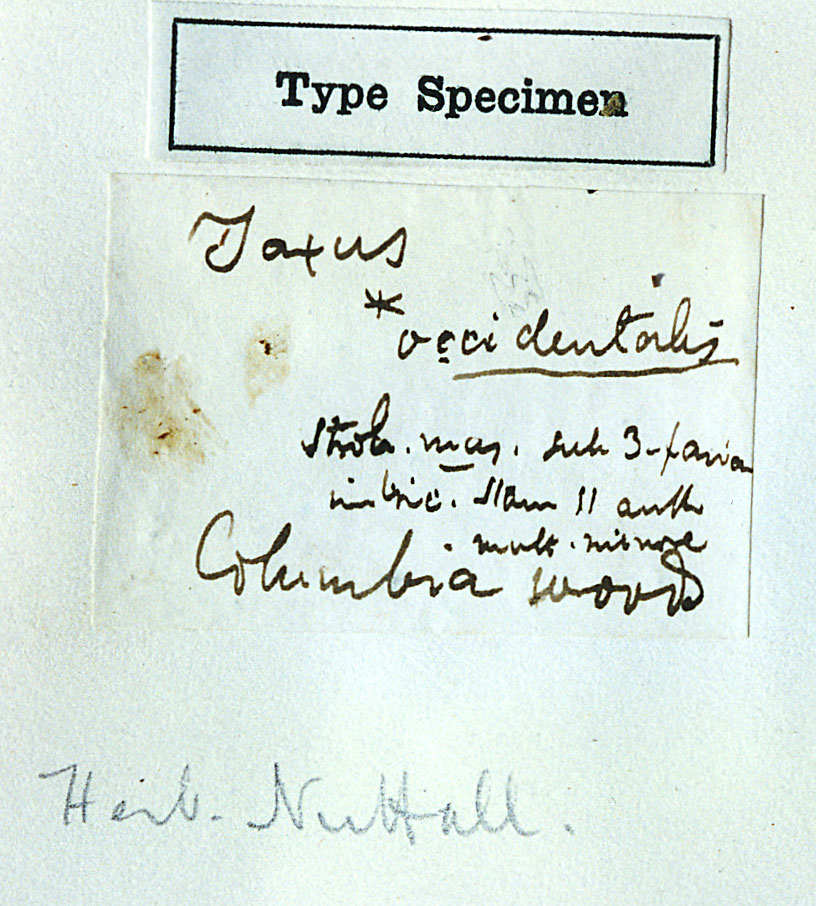 Type Specimen
Taxus
*
occidentalis
Strob. mas. sub 3-faria
imbric. Stam 11 anth
mult. minore
Columbia woods
Herb. Nuttall.